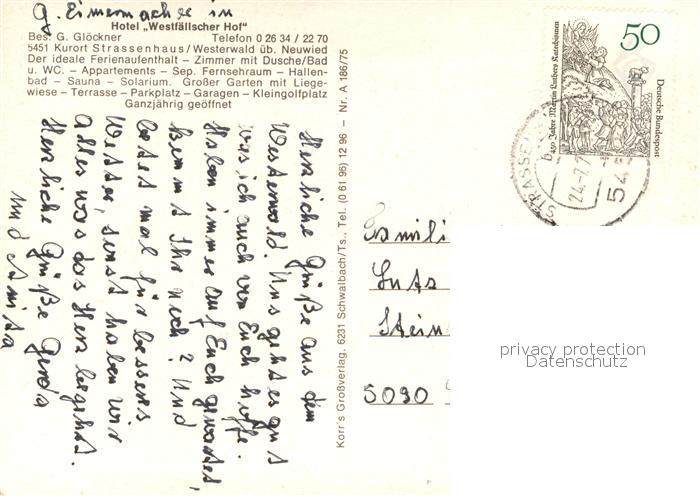 G. Eimermacher in
Hotel „Westfälischer Hof"
Bes. G. Glöckner Telefon 0 26 34 / 22 70
5451 Kurort Strassenhaus / Westerwald üb. Neuwied
Der ideale Ferienaufenthalt – Zimmer mit Dusche/Bad
u. WC. – Appartements – Sep. Fernsehraum – Hallen-
bad – Sauna – Solarium. Großer Garten mit Liege-
wiese – Terrasse – Parkplatz – Garagen – Kleingolfplatz
Ganzjährig geöffnet
Herzliche Grüße aus dem
Westerwald. Uns geht es gut
was ich auch von Euch hoffe.
Haben immer auf Euch gewartet,
kommt Ihr noch? Und
betet mal für besseres
Wetter, sonst haben wir
alles was das Herz begehrt.
Herzliche Grüße Gerda
und Anita
Korr's Großverlag, 6231 Schwalbach/Ts., Tel. (0 61 96) 12 96 – Nr. A 186/75
50
Deutsche Bundespost
450 Jahre Martin Luthers Katechismen
1979
STRASSEN
b
24.-7.
545
Famili
Lutz
Stein
5090
privacy protection
Datenschutz